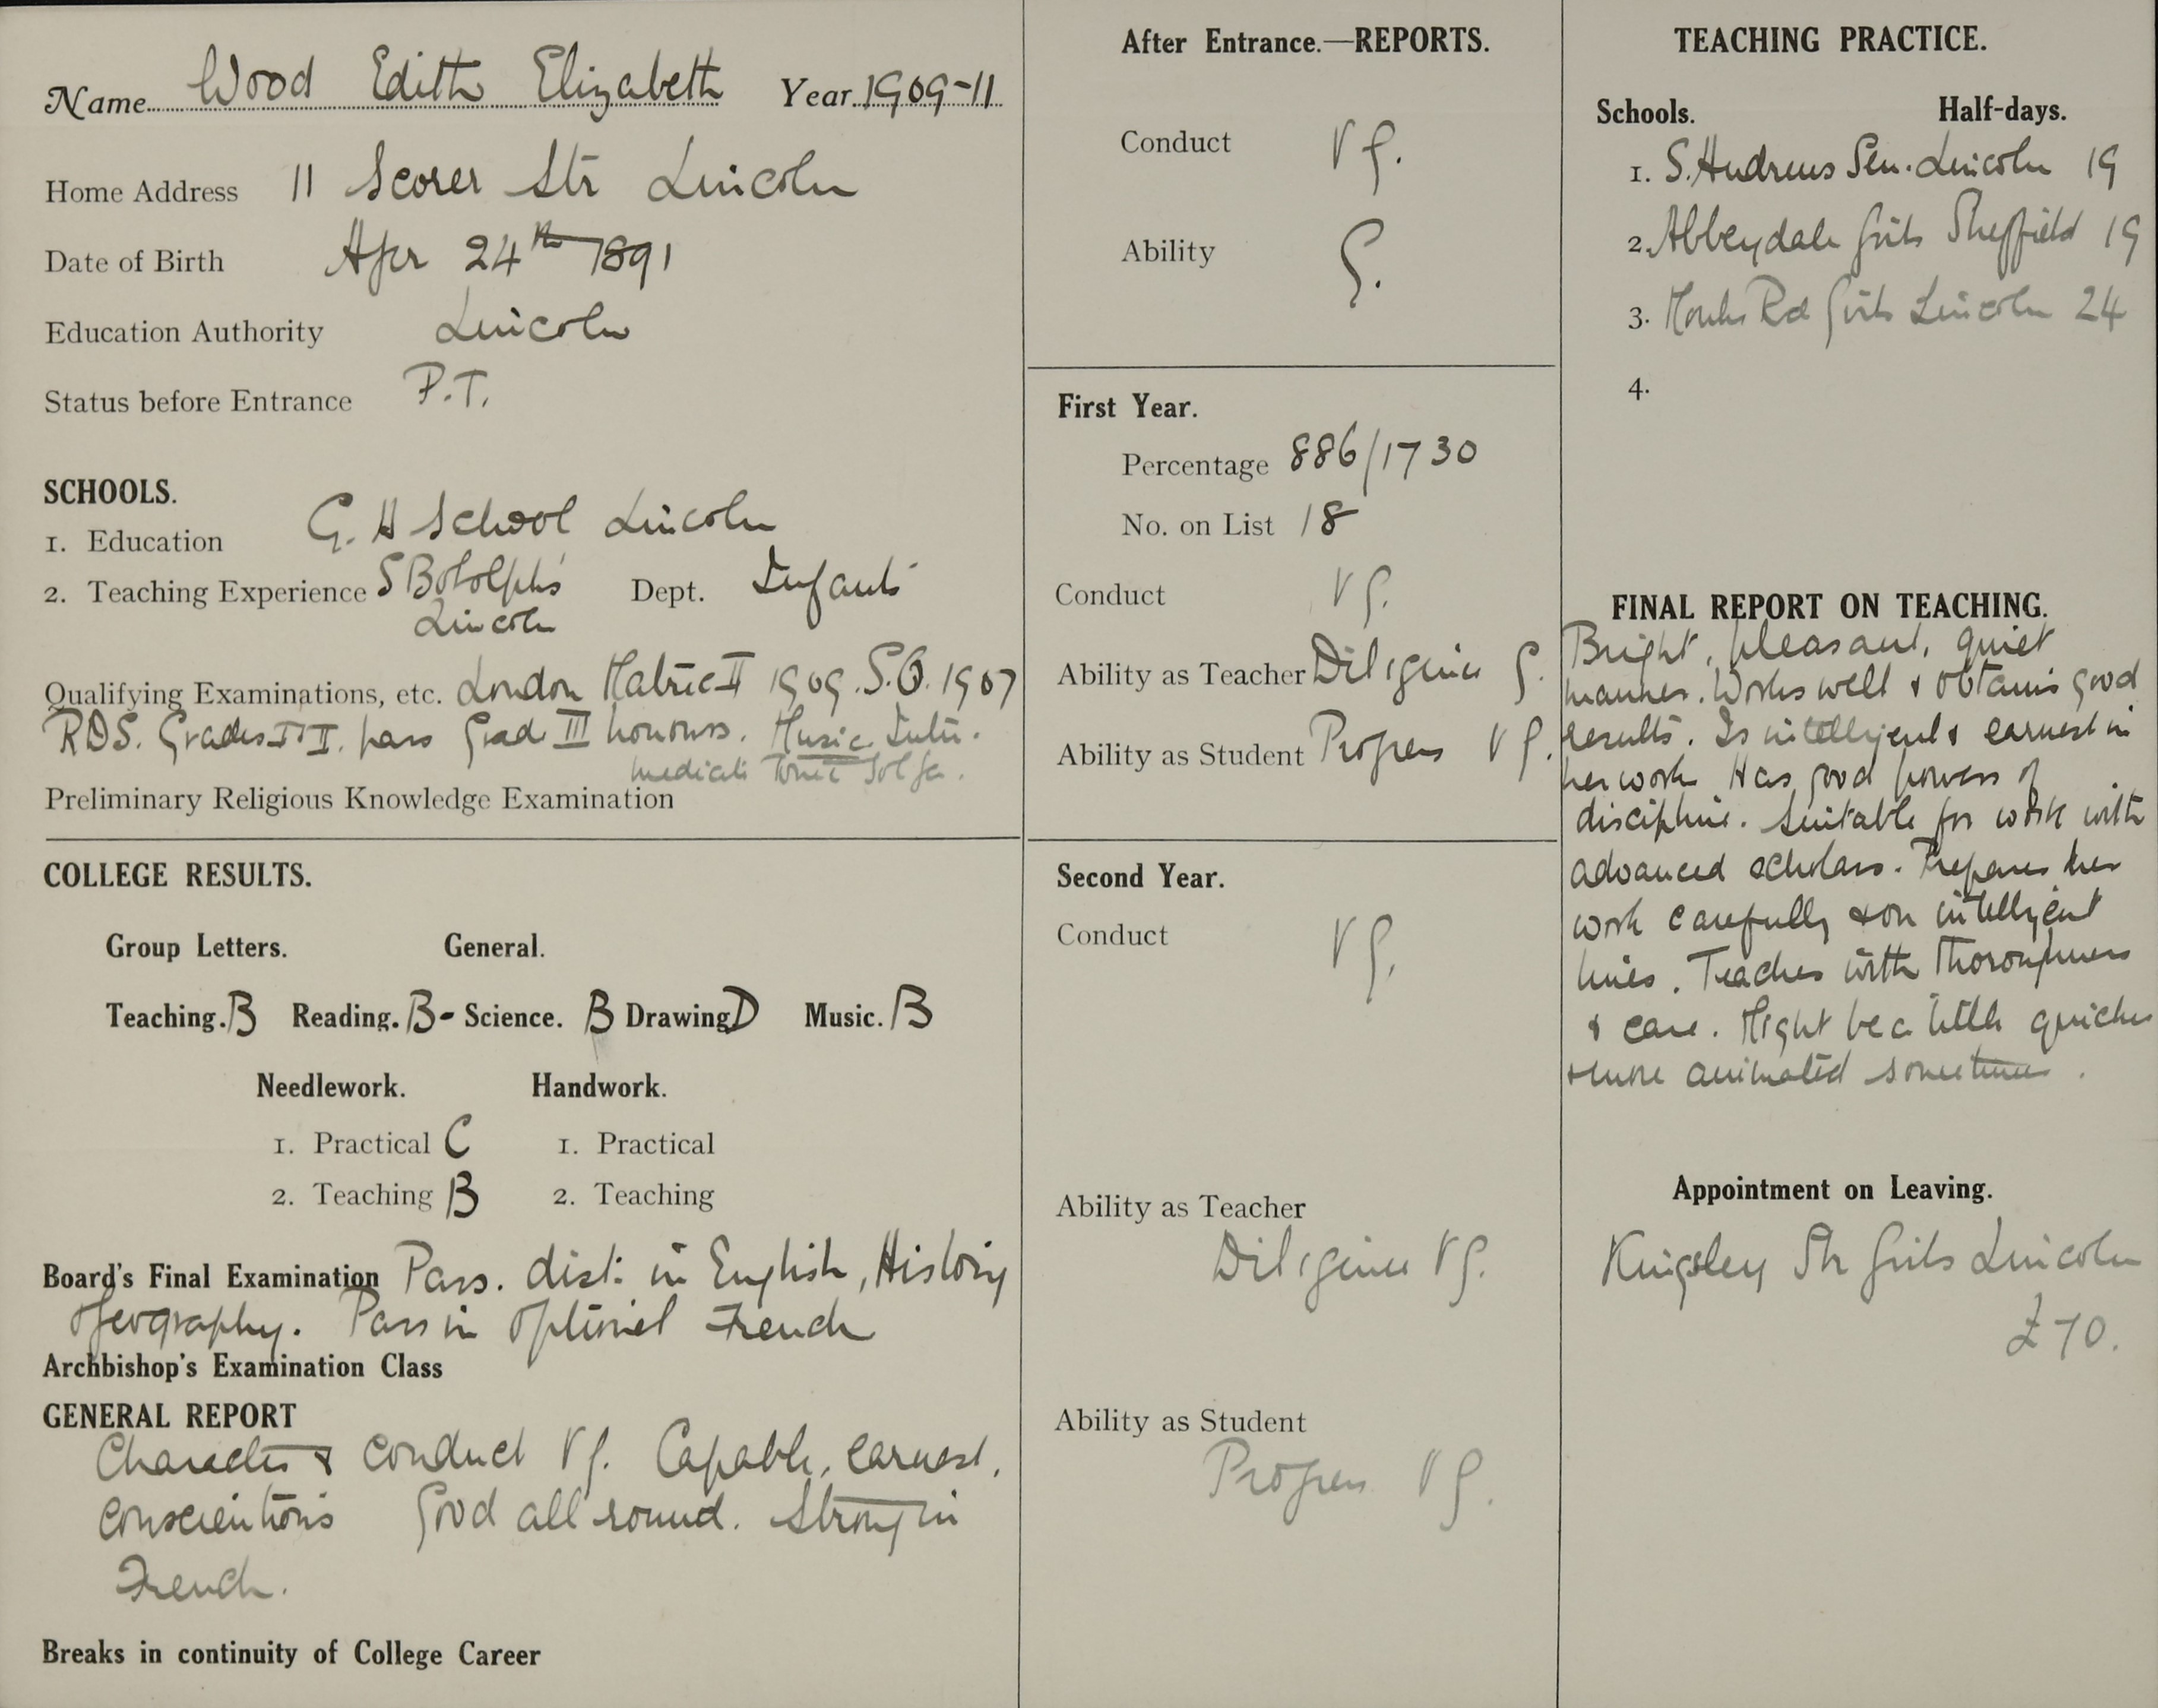 Name Wood Edith Elizabeth Year 1909-11
Home Address 11 Scorer Str Lincoln
Date of Birth Apr 24th 1891
Education Authority Lincoln
Status before Entrance P.T.
SCHOOLS.
1. Education G. H School Lincoln
2. Teaching Experience S Botolph's Dept. Infants
Lincoln
Qualifying Examinations, etc. London Matric II 1909. S.O. 1907
R.D.S. Grades I & II. pass Grad III honours. Music Inter-
mediate Tonic Sol fa.
Preliminary Religious Knowledge Examination
COLLEGE RESULTS.
Group Letters. General.
Teaching. B Reading. B- Science. B Drawing D Music. B
Needlework. Handwork.
1. Practical C 1. Practical
2. Teaching B 2. Teaching
Board's Final Examination Pass. dist: in English, History
Geography. Pass in optional French
Archbishop's Examination Class
GENERAL REPORT
Character & conduct Vg. Capable, earnest,
conscientious Good all round. Strong in
French.
Breaks in continuity of College Career
After Entrance.—REPORTS.
Conduct Vg.
Ability G.
First Year.
Percentage 886/1730
No. on List 18
Conduct Vg.
Ability as Teacher Diligence G.
Ability as Student Progress Vg.
Second Year.
Conduct Vg.
Ability as Teacher
Diligence Vg.
Ability as Student
Progress Vg.
TEACHING PRACTICE.
Schools. Half-days.
1. S. Andrews Sen. Lincoln 19
2. Abbeydale Girls Sheffield 19
3. Monks Rd Girls Lincoln 24
4.
FINAL REPORT ON TEACHING.
Bright, pleasant, quiet
manner. Works well & obtains good
results. Is intelligent & earnest in
her work Has good powers of
discipline. Suitable for work with
advanced scholars. Prepares her
work carefully & on intelligent
lines. Teaches with thoroughness
& care. Might be a little quicker
& more animated sometimes.
Appointment on Leaving.
Kingsley Str Girls Lincoln
£70.